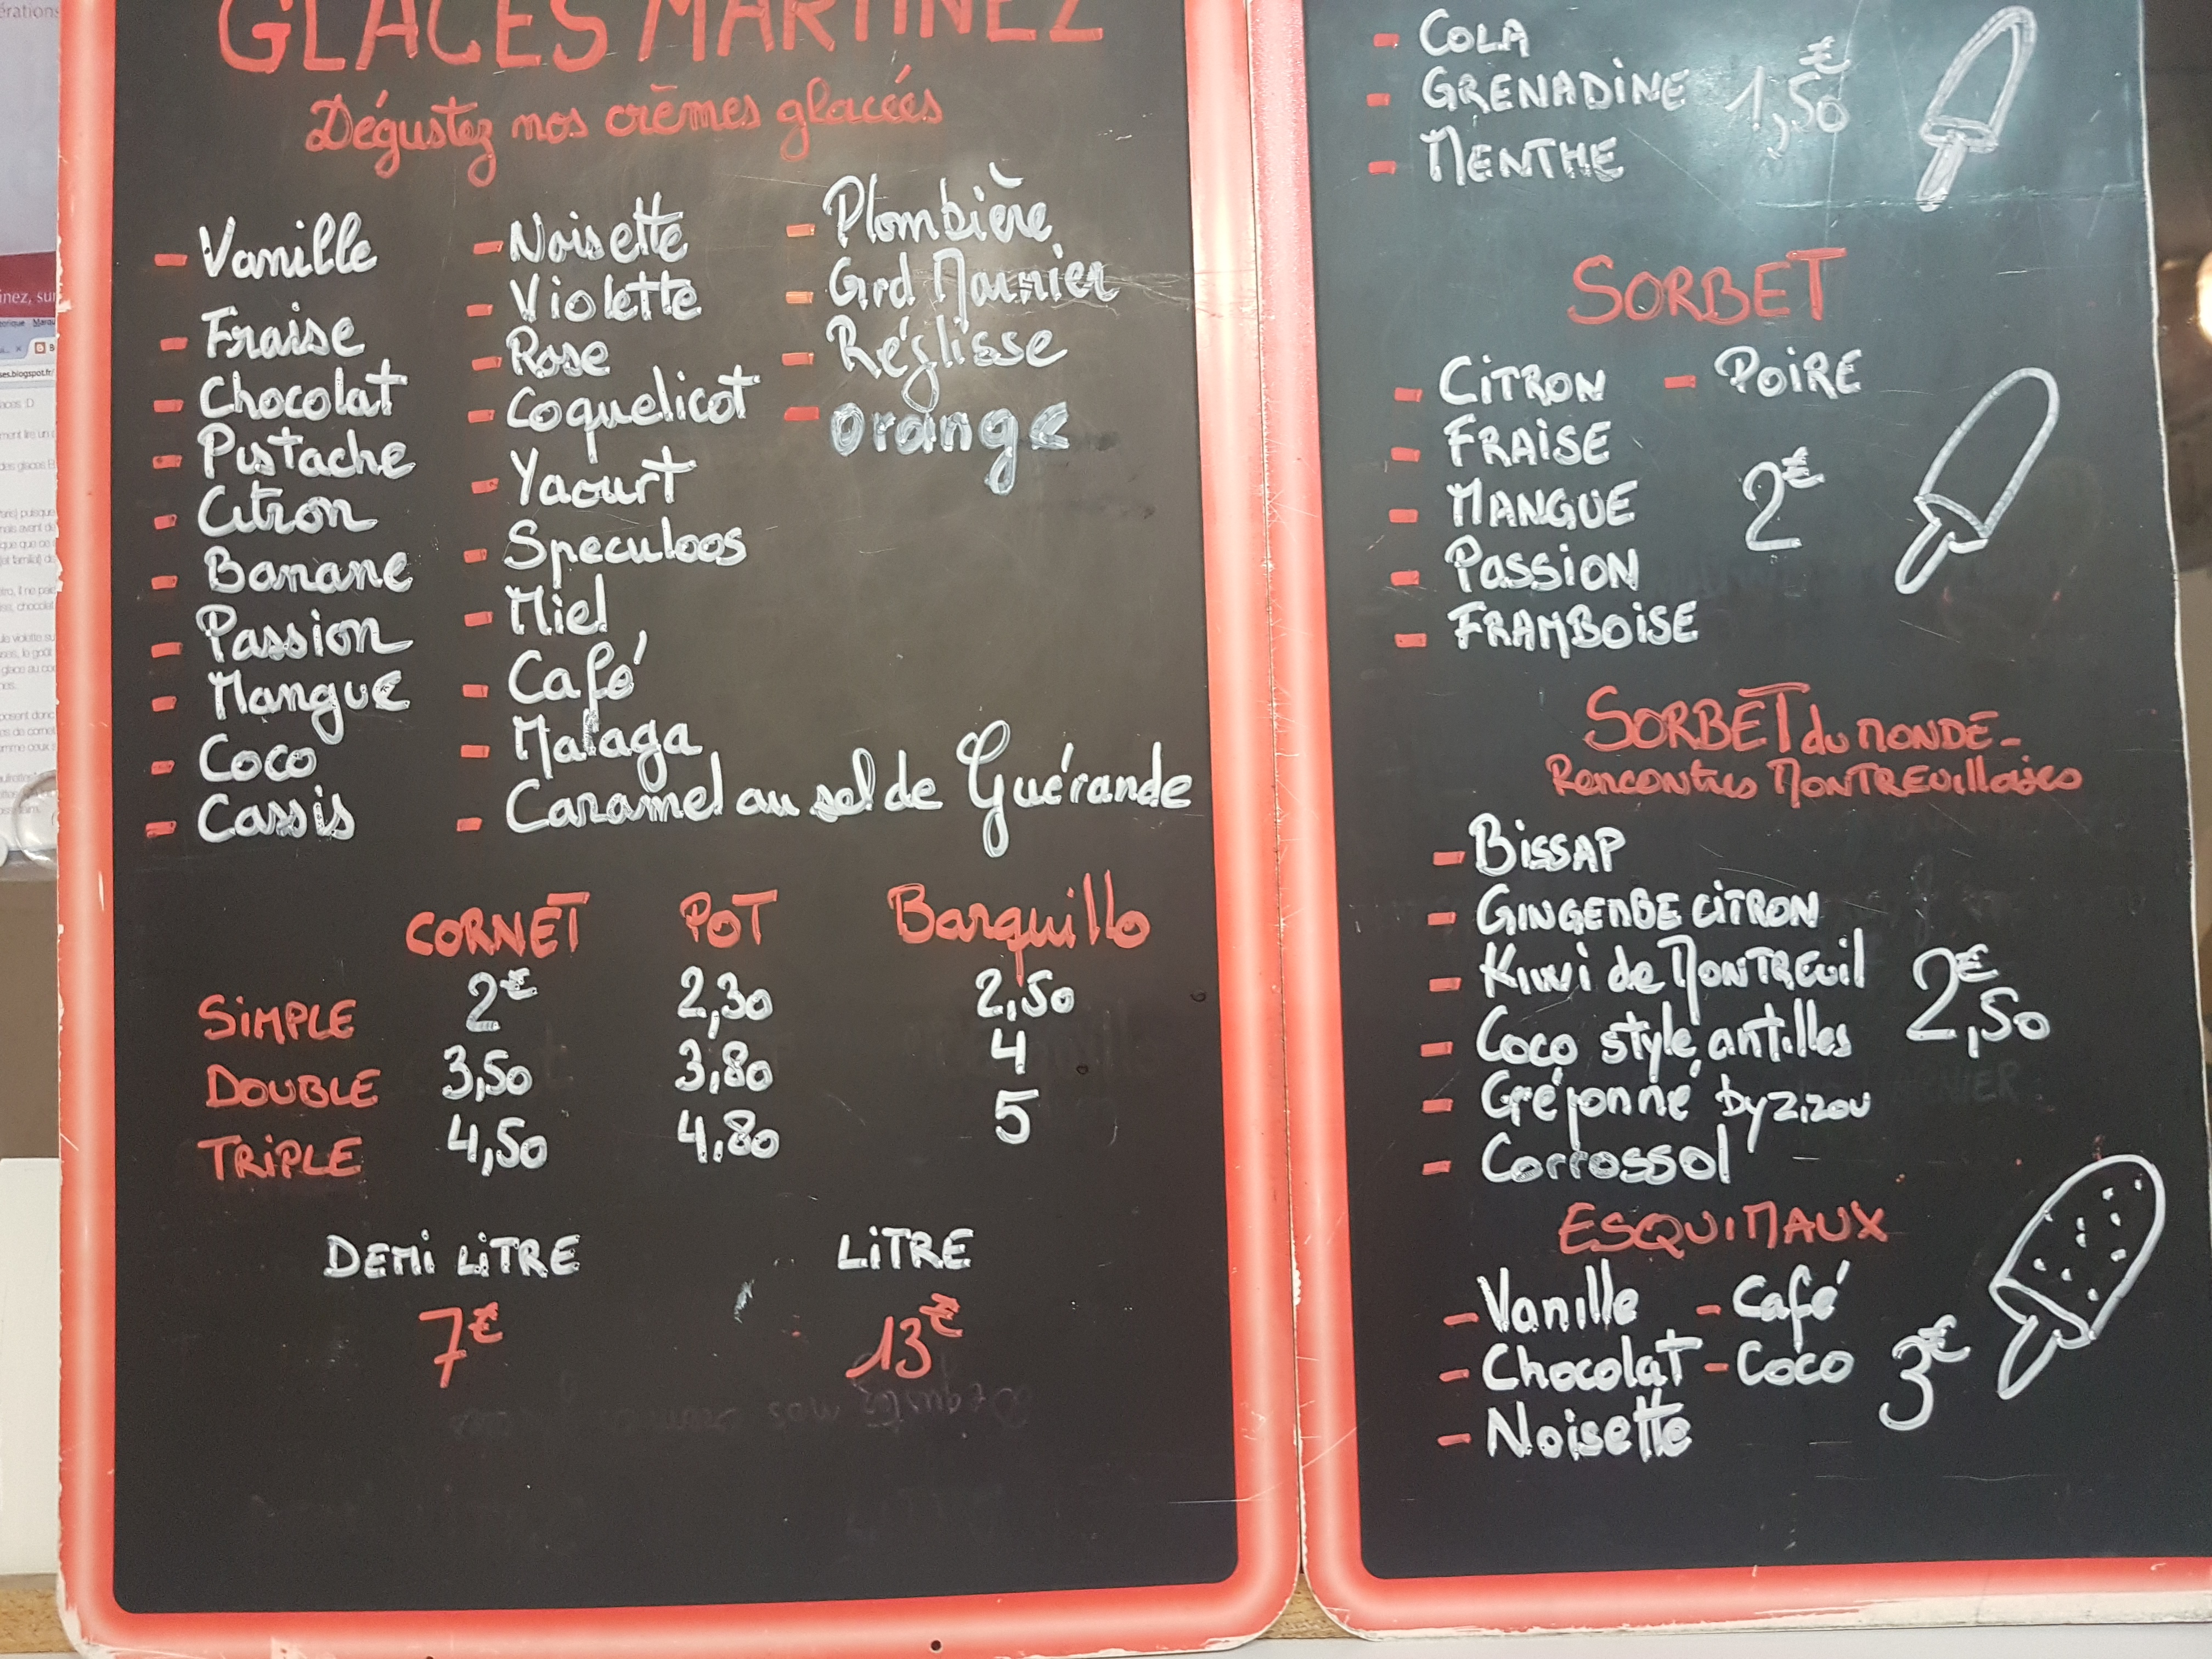 GLACES MARTINEZ
Dégustez nos crèmes glacées
- Vanille
- Fraise
- Chocolat
- Pistache
- Citron
- Banane
- Passion
- Mangue
- Coco
- Cassis
- Noisette
- Violette
- Rose
- Coquelicot
- Yaourt
- Speculoos
- Miel
- Café
- Malaga
- Caramel au sel de Guérande
- Plombière
- Grd Marnier
- Réglisse
- Orange
CORNET POT Barquillo
SIMPLE 2€ 2,30 2,50
DOUBLE 3,50 3,80 4
TRIPLE 4,50 4,80 5
DEMI LITRE LITRE
7€ 13€
- COLA
- GRENADINE 1,50€
- MENTHE
SORBET
- CITRON - POIRE
- FRAISE
- MANGUE 2€
- PASSION
- FRAMBOISE
SORBET du MONDE -
Rencontres MONTREUillaises
- BISSAP
- GINGEMBE CITRON
- Kiwi de MONTREUIL 2€,50
- Coco style antilles
- Gréyonné by Zizou
- Corrossol
ESQUIMAUX
- Vanille - Café
- Chocolat - Coco 3€
- Noisette